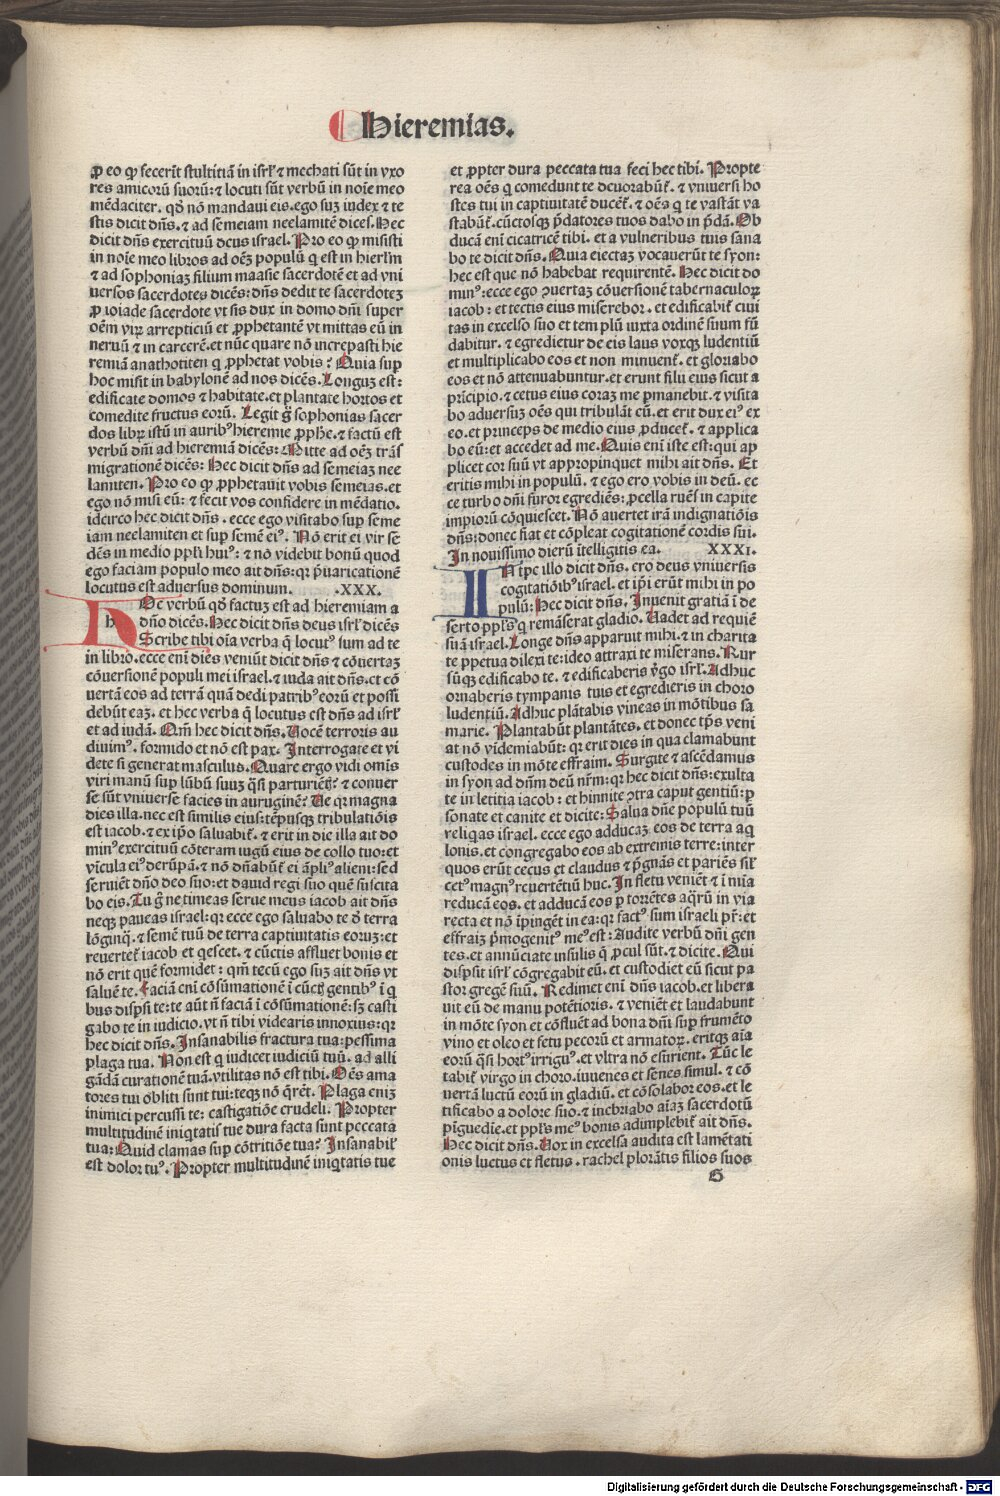 Hieremias.
ꝓ eo ꝙ fecerūt stultitiā in isrl̄ ⁊ mechati sūt in vxo
res amicorū suorū: ⁊ locuti sūt verbū in noīe meo
mēdaciter. qđ nō mandaui eis. ego suꝫ iudex ⁊ te
stis dicit dn̄s. ⁊ ad semeiam neelamitē dices. Hec
dicit dn̄s exercituū deus israel. Pro eo ꝙ misisti
in noīe meo libros ad oēꝫ populū q est in hierl̄m
⁊ ad sophoniaꝫ filium maasie sacerdotē et ad vni
uersos sacerdotes dicēs: dn̄s dedit te sacerdoteꝫ
ꝓ ioiade sacerdote vt sis dux in domo dn̄i super
oēm virꝫ arrepticiū et ꝓphetantē vt mittas eū in
neruū ⁊ in carcerē. et nūc quare nō increpasti hie
remiā anathotiten q ꝓphetat vobis? Quia suꝑ
hoc misit in babylonē ad nos dicēs. Longuꝫ est:
edificate domos ⁊ habitate. et plantate hortos et
comedite fructus eorū. Legit g̊ sophonias sacer
dos libꝝ istū in aurib⁹ hieremie ꝓphe. ⁊ factū est
verbū dn̄i ad hieremiā dicēs: Mitte ad oēꝫ trās
migrationē dicēs: Hec dicit dn̄s ad semeiaꝫ nee
lamiten. Pro eo ꝙ ꝓphetauit vobis semeias. et
ego nō misi eū: ⁊ fecit vos confidere in mēdatio.
idcirco hec dicit dn̄s. ecce ego visitabo suꝑ seme
iam neelamiten et suꝑ semē ei⁹. Nō erit ei vir se
dēs in medio ppl̄i hui⁹: ⁊ nō videbit bonū quod
ego faciam populo meo ait dn̄s: qꝛ p̄uaricationē
locutus est aduersus dominum. .XXX.
Hoc verbū qđ factuꝫ est ad hieremiam a
dn̄o dicēs. Hec dicit dn̄s deus isrl̄ dicēs
Scribe tibi oīa verba q̄ locut⁹ sum ad te
in libro. ecce enī dies veniūt dicit dn̄s ⁊ cōuertaꝫ
cōuersionē populi mei israel. ⁊ iuda ait dn̄s. et cō
uertā eos ad terrā quā dedi patrib⁹ eorū et possi
debūt eaꝫ. et hec verba q̄ locutus est dn̄s ad isrl̄
et ad iudā. Qm̄ hec dicit dn̄s. Uocē terroris au
diuim⁹. formido et nō est pax. Interrogate et vi
dete si generat masculus. Quare ergo vidi omīs
viri manū suꝑ lūbū suuꝫ q̄si parturiētꝭ? ⁊ conuer
se sūt vniuerse facies in auruginē? Ue qꝛ magna
dies illa. nec est similis eius: tēpusqꝫ tribulatiōis
est iacob. ⁊ ex ip̄o saluabit̄. ⁊ erit in die illa ait do
min⁹ exercituū cōteram iugū eius de collo tuo: et
vīcula ei⁹ derūpā. ⁊ nō dn̄abūt̄ ei āpli⁹ alieni: sed
seruiēt dn̄o deo suo: et dauid regi suo quē suscita
bo eis. Tu g̊ ne timeas serue meus iacob ait dn̄s
neqꝫ paueas israel: qꝛ ecce ego saluabo te đ terra
lōginq̄. ⁊ semē tuū de terra captiuitatis eoruꝫ: et
reuertet̄ iacob et qescet. ⁊ cūctis affluet bonis et
nō erit quē formidet: qm̄ tecū ego suꝫ ait dn̄s vt
saluē te. Faciā enī cōsūmationē ī cūctꝭ gentib⁹ ī q
bus disꝑsi te: te aūt n̄ faciā ī cōsūmationē: sꝫ casti
gabo te in iudicio. vt n̄ tibi videaris innoxius: qꝛ
hec dicit dn̄s. Insanabilis fractura tua: pessima
plaga tua. Non est q iudicet iudiciū tuū. ad alli
gādā curationē tuā. vtilitas nō est tibi. Oēs ama
tores tui obliti sunt tui: teqꝫ nō q̄rēt. Plaga enīꝫ
inimici percussi te: castigatiōe crudeli. Propter
multitudinē iniqtatis tue dura facta sunt peccata
tua: Quid clamas suꝑ cōtritiōe tua? Insanabil̄
est dolor tu⁹. Propter multitudinē iniqtatis tue
et ꝓpter dura peccata tua feci hec tibi. Propte
rea oēs q comedunt te deuorabūt̄. ⁊ vniuersi ho
stes tui in captiuitatē ducēt̄. ⁊ oēs q te vastāt va
stabūt̄. cūctosqꝫ p̄datores tuos dabo in p̄dā. Ob
ducā enī cicatricē tibi. et a vulneribus tuis sana
bo te dicit dn̄s. Quia eiectaꝫ vocauerūt te syon:
hec est que nō habebat requirentē. Hec dicit do
min⁹: ecce ego ꝯuertaꝫ cōuersionē tabernaculoꝝ
iacob: et tectis eius miserebor. et edificabit̄ ciui
tas in excelso suo et templū iuxta ordinē suum fū
dabitur. ⁊ egredietur de eis laus voxqꝫ ludentiū
et multiplicabo eos et non minuent̄. et gloriabo
eos et nō attenuabuntur. et erunt filii eius sicut a
pricipio. ⁊ cetus eius coraꝫ me ꝑmanebit. ⁊ visita
bo aduersuꝫ oēs qui tribulāt eū. et erit dux ei⁹ ex
eo. et princeps de medio eius ꝓducet̄. ⁊ applica
bo eū: et accedet ad me. Quis enī iste est: qui ap
plicet cor suū vt appropinquet mihi ait dn̄s. Et
eritis mihi in populū. ⁊ ego ero vobis in deū. ec
ce turbo dn̄i furor egrediēs: ꝓcella ruēs in capite
impiorū cōquiescet. Nō auertet irā indignatiōis
dn̄s: donec fiat et cōpleat cogitationē cordis sui.
In nouissimo dierū ītelligitis ea. XXXI.
In tꝑe illo dicit dn̄s. ero deus vniuersis
cogitatiōib⁹ israel. et ip̄i erūt mihi in po
pulū: Hec dicit dn̄s. Inuenit gratiā ī de
serto ppl̄s q remāserat gladio. Uadet ad requiē
suā israel. Longe dn̄s apparuit mihi. ⁊ in charita
te ꝑpetua dilexi te: ideo attraxi te miserans. Rur
sūqꝫ edificabo te. ⁊ edificaberis v̄go isrl̄. Adhuc
ornaberis tympanis tuis et egredieris in choro
ludentiū. Adhuc plātabis vineas in mōtibus sa
marie. Plantabūt plantātes. et donec tp̄s veni
at nō vīdemiabūt: qꝛ erit dies in qua clamabunt
custodes in mōte effraim. Surgite ⁊ ascēdamus
in syon ad dn̄m deū nr̄m: qꝛ hec dicit dn̄s: exulta
te in letitia iacob: et hinnite ꝯtra caput gentiū: ꝑ
sonate et canite et dicite: Salua dn̄e populū tuū
reliqias israel. ecce ego adducaꝫ eos de terra aq
lonis. et congregabo eos ab extremis terre: inter
quos erūt cecus et claudus ⁊ p̄gnās et pariēs sil̄
cet⁹ magn⁹ reuertētiū huc. In fletu veniēt ⁊ ī mīa
reducā eos. et adducā eos ꝑ torrētes aq̄rū in via
recta et nō īpingēt in ea: qꝛ fact⁹ sum israeli pr̄: et
effraiꝫ p̄mogenit⁹ me⁹ est: Audite verbū dn̄i gen
tes. et annūciate insulis q̄ ꝓcul sūt. ⁊ dicite. Qui
disꝑsit isrl̄ cōgregabit eū. et custodiet eū sicut pa
stor gregē suū. Redimet enī dn̄s iacob. et libera
uit eū de manu potētioris. ⁊ veniēt et laudabunt
in mōte syon et cōfluēt ad bona dn̄i suꝑ frumēto
vino et oleo et fetu pecorū et armatoꝝ. eritqꝫ aīa
eorū q̄si hort⁹ irrigu⁹. et vltra nō esurient. Tūc le
tabit̄ virgo in choro. iuuenes et senes simul. ⁊ cō
uertā luctū eorū in gladiū. et cōsolabor eos. et le
tificabo a dolore suo. ⁊ inebriabo aīaꝫ sacerdotū
pīguedīe. et ppl̄s me⁹ bonis adimplebit̄ ait dn̄s.
Hec dicit dn̄s. Uox in excelsa audita est lamētati
onis luctus et fletus. rachel plorātis filios suos
G
Digitalisierung gefördert durch die Deutsche Forschungsgemeinschaft - DFG